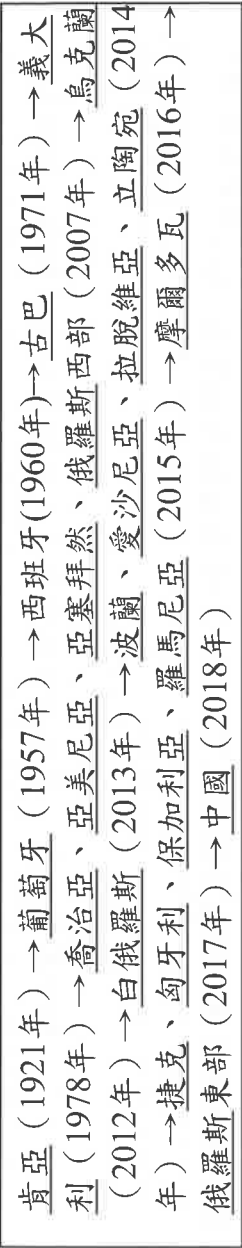 肯亞（1921年）→葡萄牙（1957年）→西班牙(1960年)→古巴（1971年）→義大
利（1978年）→喬治亞、亞美尼亞、亞塞拜然、俄羅斯西部（2007年）→烏克蘭
（2012年）→白俄羅斯（2013年）→波蘭、愛沙尼亞、拉脫維亞、立陶宛（2014
年）→捷克、匈牙利、保加利亞、羅馬尼亞（2015年）→摩爾多瓦（2016年）→
俄羅斯東部（2017年）→中國（2018年）